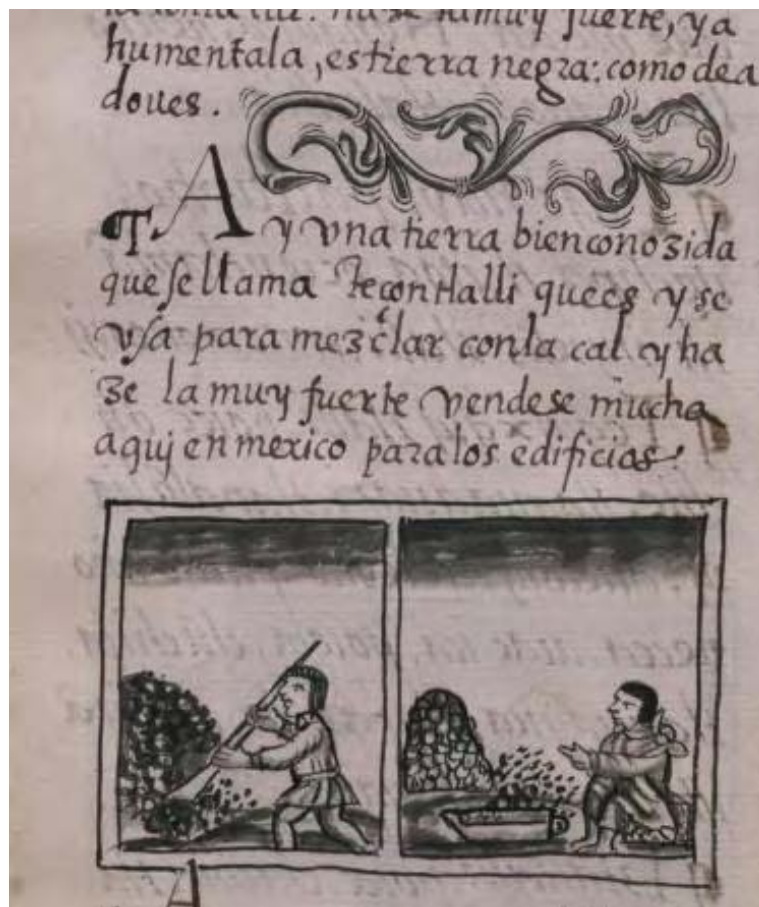 muy fuerte, y a
humentala, es tierra negra: como de a
doues.
¶ Ay vna tierra bien conozida
que se llama Tecontlalli que es y se
vsa para mezclar con la cal y ha
ze la muy fuerte vendese mucha
aquj en mexico para los edificios.
A